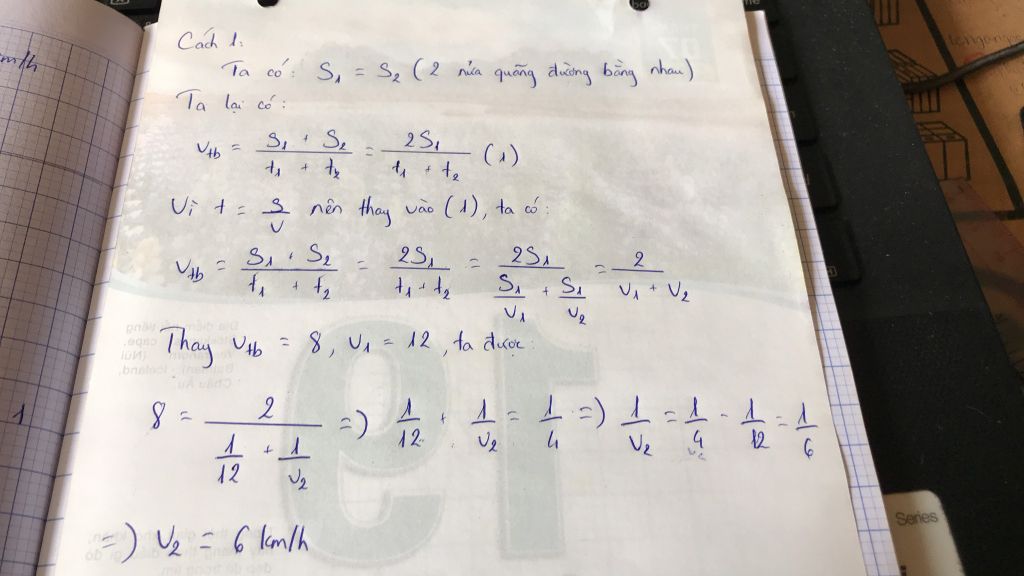 Cách 1:
Ta có: S₁ = S₂ (2 nửa quãng đường bằng nhau)
Ta lại có:
v_tb = (S₁ + S₂)/(t₁ + t₂) = 2S₁/(t₁ + t₂) (1)
Vì t = s/v nên thay vào (1), ta có:
v_tb = (S₁ + S₂)/(t₁ + t₂) = 2S₁/(t₁ + t₂) = 2S₁/(S₁/v₁ + S₁/v₂) = 2/(v₁ + v₂)
Thay v_tb = 8, v₁ = 12, ta được:
8 = 2/(1/12 + 1/v₂) => 1/12 + 1/v₂ = 1/4 => 1/v₂ = 1/4 - 1/12 = 1/6
=> v₂ = 6 km/h
km/h
1
19
Series